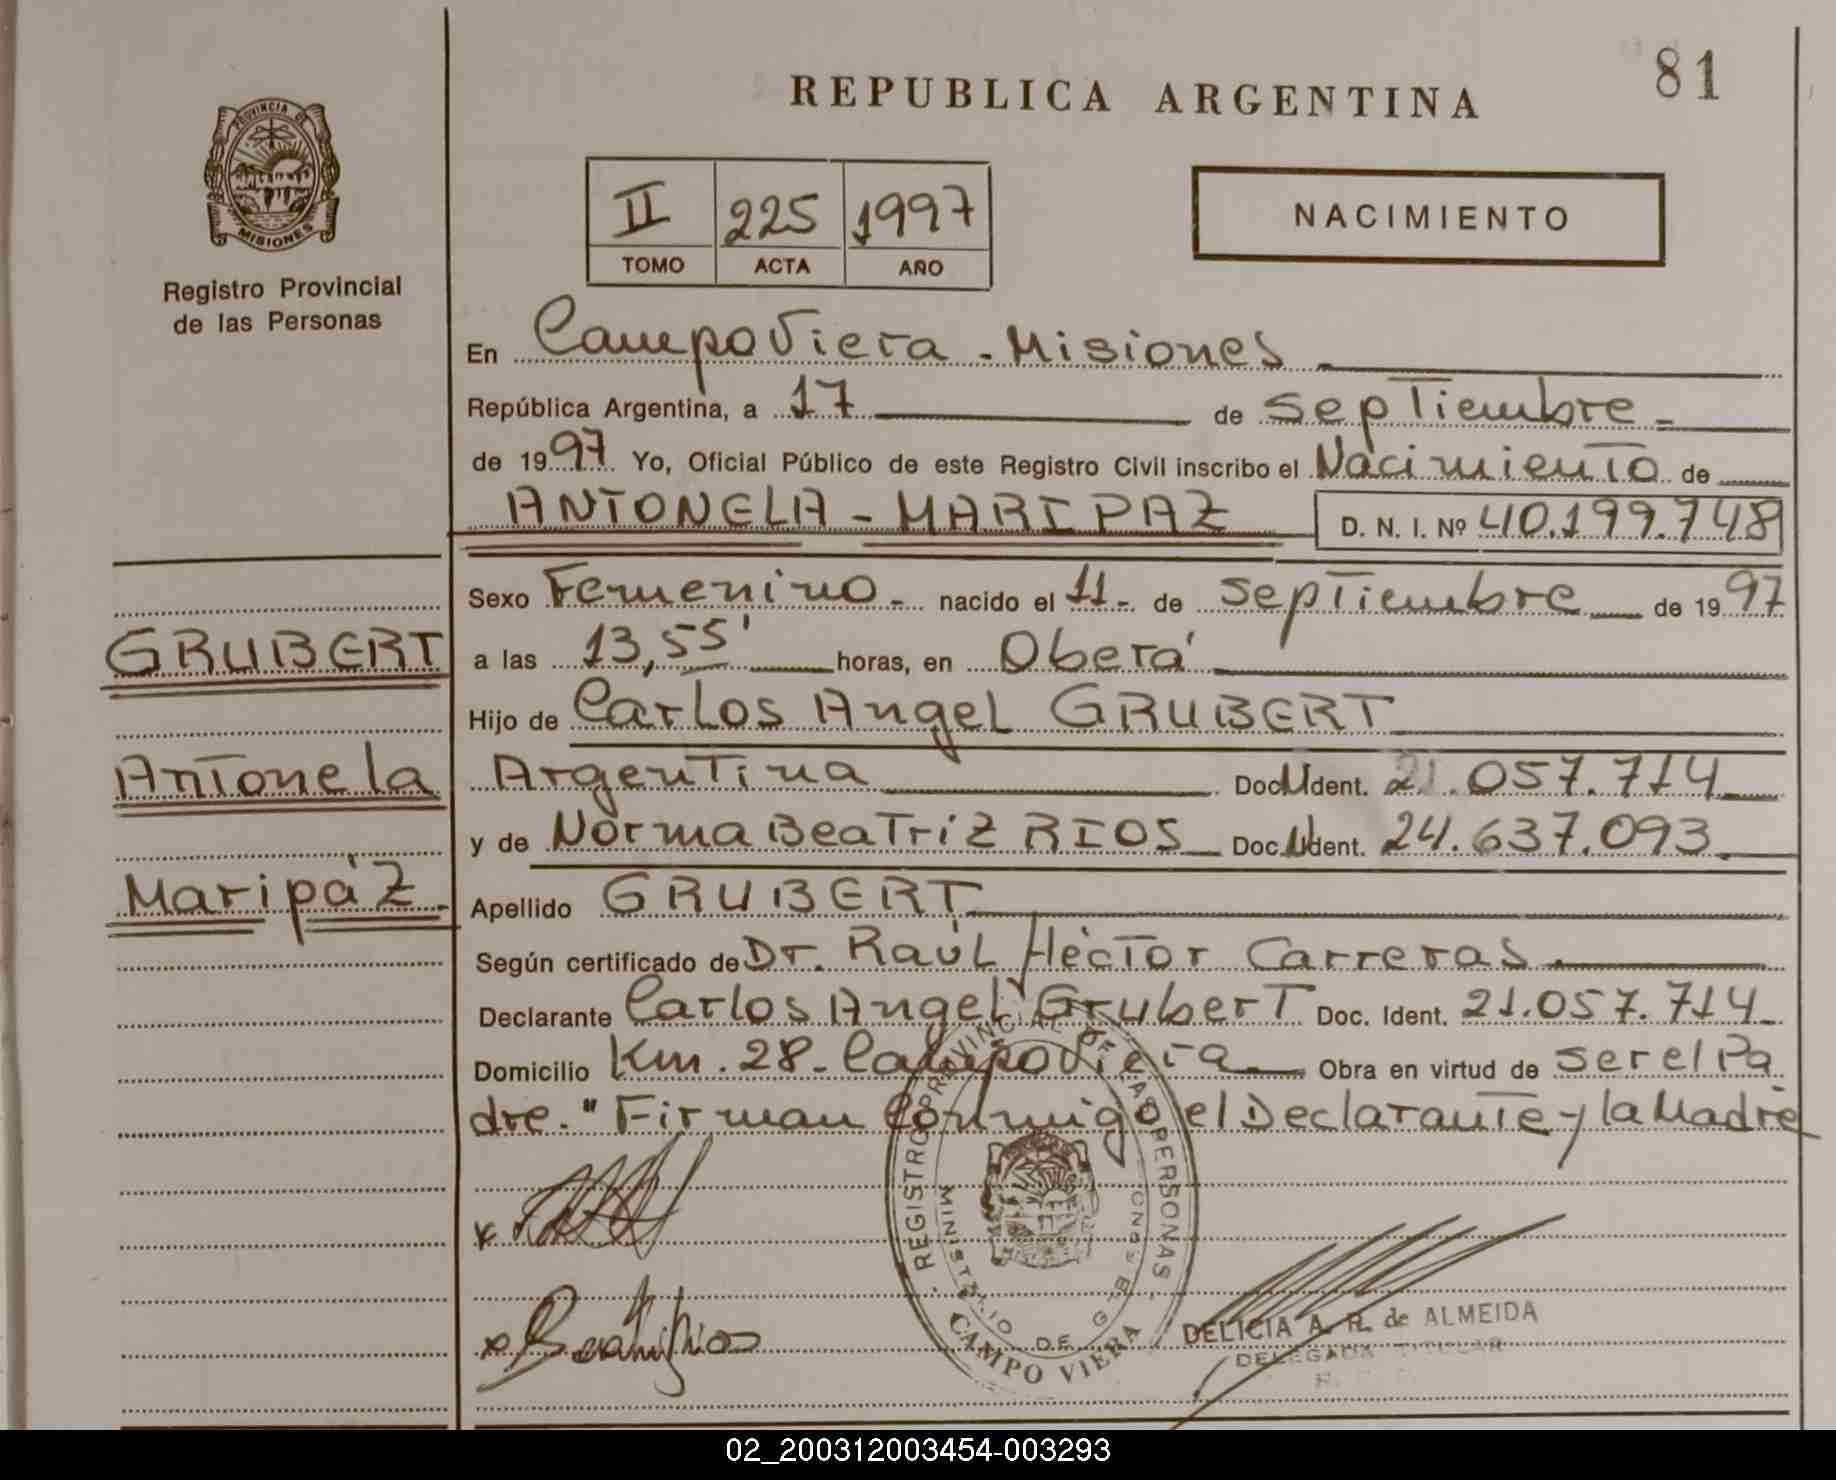 81
REPUBLICA ARGENTINA
PROVINCIA DE
MISIONES
Registro Provincial
de las Personas
II 225 1997
TOMO ACTA AÑO
NACIMIENTO
En Campo Viera - Misiones
República Argentina, a 17 de Septiembre
de 1997 Yo, Oficial Público de este Registro Civil inscribo el Nacimiento de
ANTONELA - MARIPAZ D. N. I. Nº 40.199.748
Sexo Femenino - nacido el 11 - de Septiembre de 1997
a las 13,55' horas, en Oberá
Hijo de Carlos Angel GRUBERT
Argentina Doc. Ident. 21.057.714
y de Norma Beatriz RIOS Doc. Ident. 24.637.093
Apellido GRUBERT
Según certificado de Dr. Raúl Héctor Carreras
Declarante Carlos Angel Grubert Doc. Ident. 21.057.714
Domicilio Km. 28 - Campo Viera Obra en virtud de ser el Pa
dre." Firman Conmigo el Declarante y la Madre
GRUBERT
Antonela
Maripáz
x
x Beatriz Rios
REGISTRO PROVINCIAL DE LAS PERSONAS
MINISTERIO DE G
CAMPO VIERA
DELICIA A. R. de ALMEIDA
DELEGADA TITULAR
02_200312003454-003293